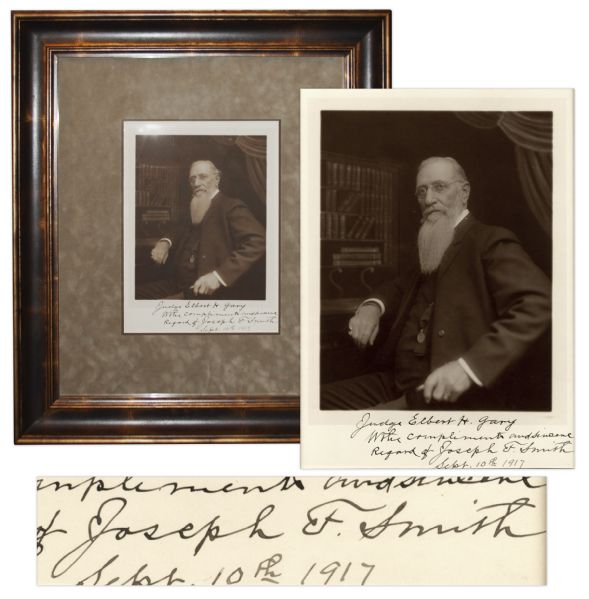 Judge Elbert H. Gary
With compliments and sincere
Regard of Joseph F. Smith
Sept. 10th 1917
Judge Elbert H. Gary
With compliments and sincere
Regard of Joseph F. Smith
Sept. 10th 1917
mpliments and sincere
of Joseph F. Smith
Sept. 10th 1917